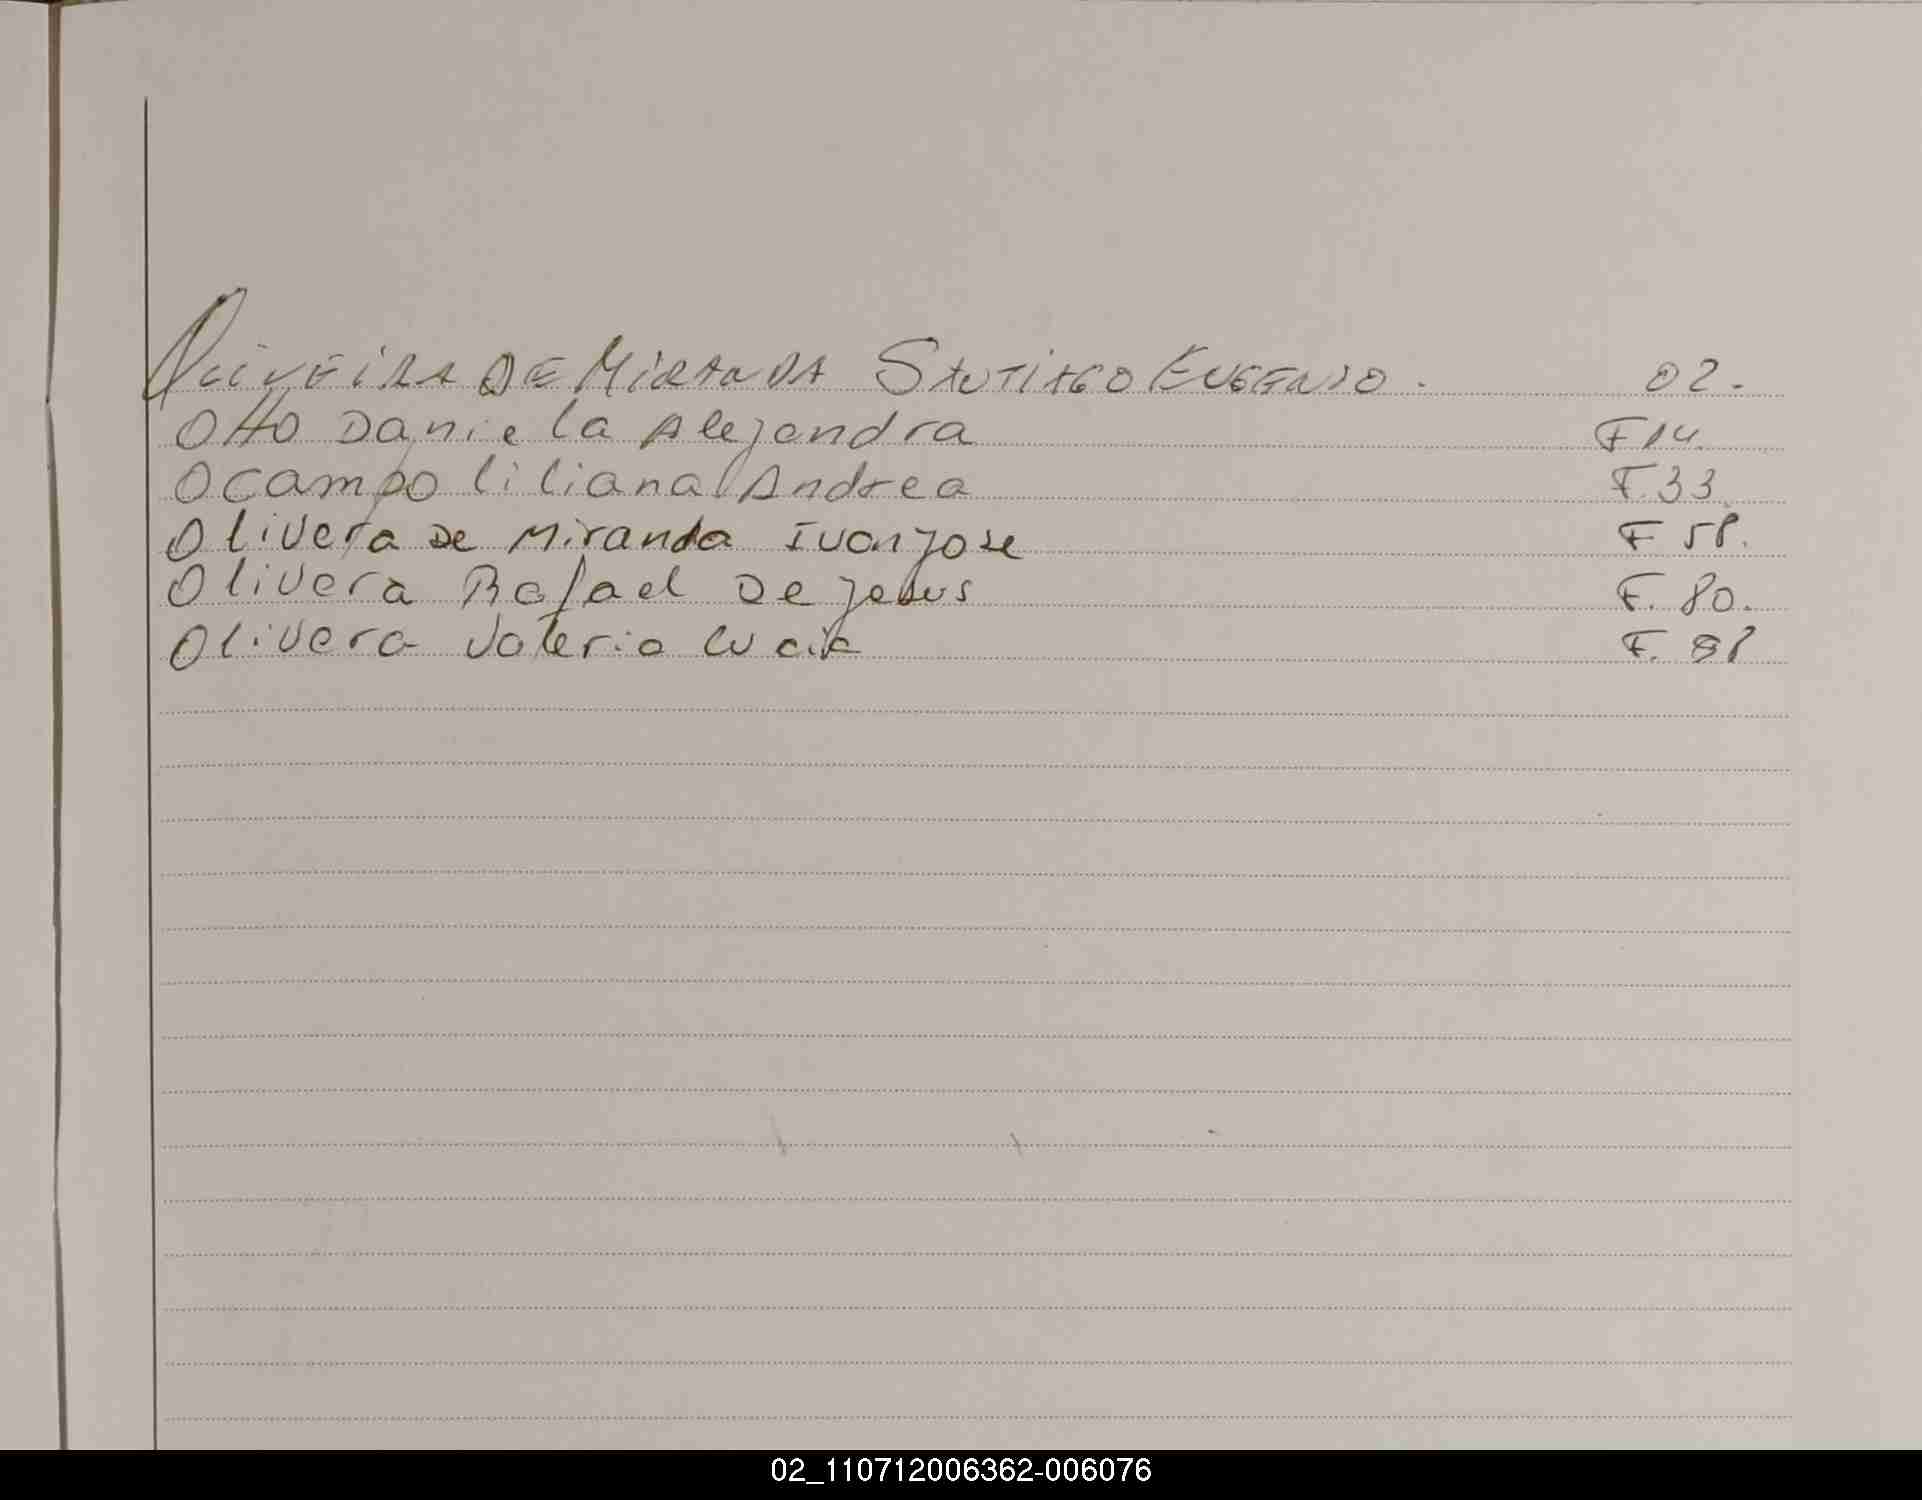 OLIVEIRA DE MIRANDA SANTIAGO EUGENIO. 02.
Otto Daniela Alejandra F 14.
Ocampo liliana Andrea F. 33.
Olivera De Miranda Ivan Jose F 58.
Olivera Rafael De Jesus F. 80.
Olivera Valeria Lucia F.
02_110712006362-006076